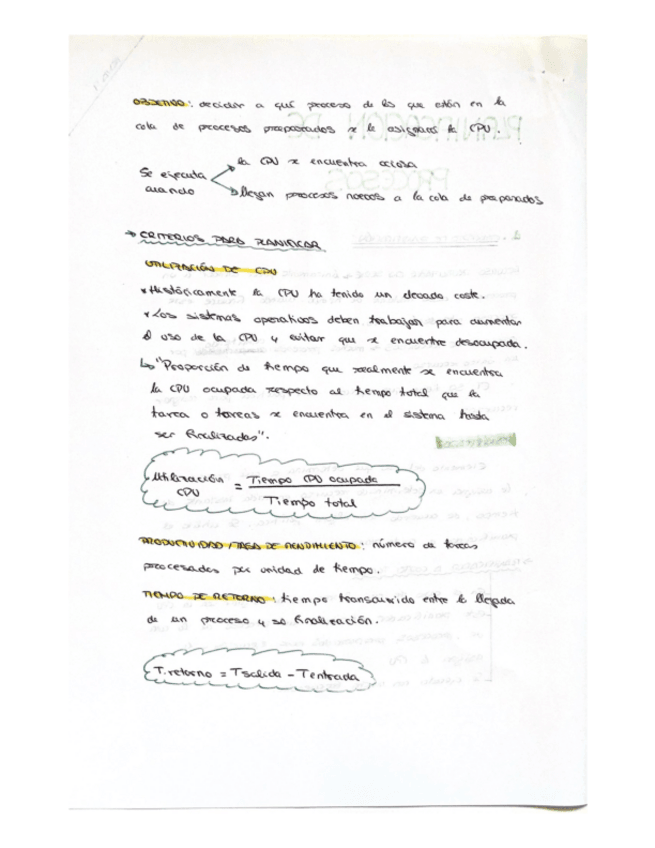 OBJETIVO: decidir a qué proceso de los que están en la
cola de procesos preparados se le asignará la CPU.
la CPU se encuentra ociosa
Se ejecuta
cuando
llegan procesos nuevos a la cola de preparados
→ CRITERIOS PARA PLANIFICAR
UTILIZACIÓN DE CPU
* Históricamente la CPU ha tenido un elevado coste.
* Los sistemas operativos deben trabajar para aumentar
el uso de la CPU y evitar que se encuentre desocupada.
↳ "Proporción de tiempo que realmente se encuentra
la CPU ocupada respecto al tiempo total que la
tarea o tareas se encuentra en el sistema hasta
ser finalizadas".
Utilización CPU = Tiempo CPU ocupada / Tiempo total
PRODUCTIVIDAD / TASA DE RENDIMIENTO: número de tareas
procesadas por unidad de tiempo.
TIEMPO DE RETORNO: tiempo transcurrido entre la llegada
de un proceso y su finalización.
T.retorno = Tsalida - Tentrada